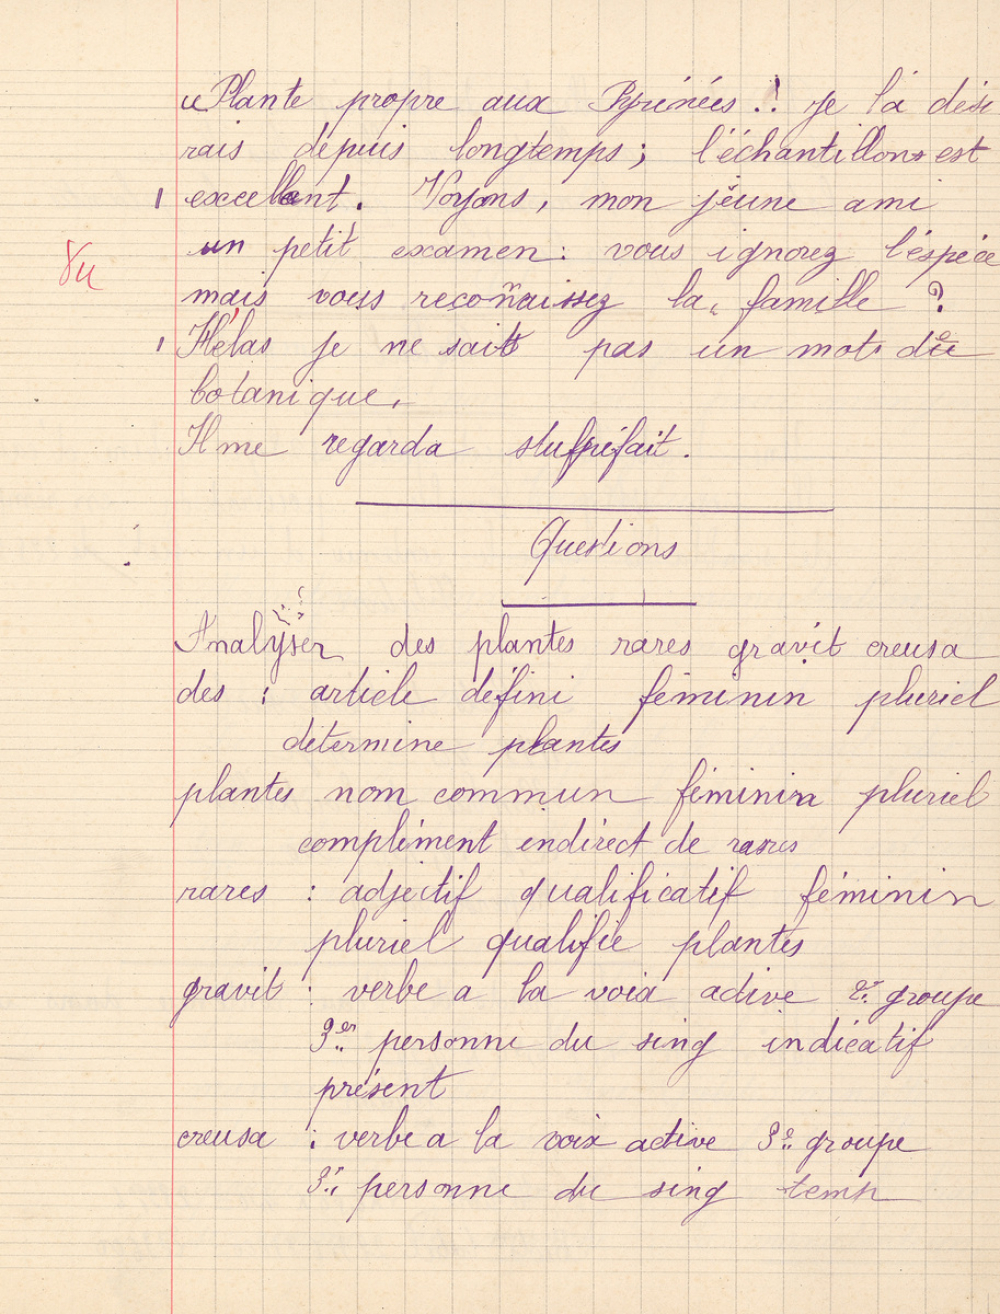 « Plante propre aux Pyrénées !. Je la dési
rais depuis longtemps ; l'échantillon est
excellent. Voyons, mon jeune ami
un petit examen : vous ignorez l'éspéce
mais vous reconnaissez la famille ?
Hélas je ne sait pas un mots de
botanique.
Il me regarda stupéfait.
Questions
Analyser des plantes rares gravit creusa
des : article défini féminin pluriel
détermine plantes
plantes nom commun féminin pluriel
complément indirect de rares
rares : adjectif qualificatif féminin
pluriel qualifie plantes
gravit : verbe a la voix active 2e groupe
3er personne du sing indicatif
présent
creusa : verbe a la voix active 3e groupe
3e personne du sing temp